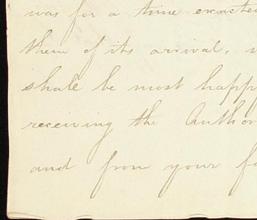 was for a time exacte
them of its arrival,
shall be most happy
receiving the Author
and from your fa